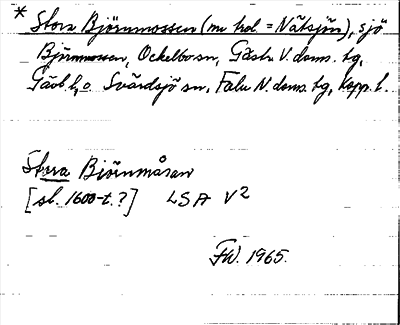 * Stora Björnmossen (nu trol. = Nätsjön), sjö
Björnmossen, Ockelbo sn, Gästr. V. doms. tg,
Gävl. l, o. Svärdsjö sn, Falu N. doms. tg, Kopp. l.
Stora Björnmåsan
[sl. 1600-t.?] LSA V2
FW. 1965.